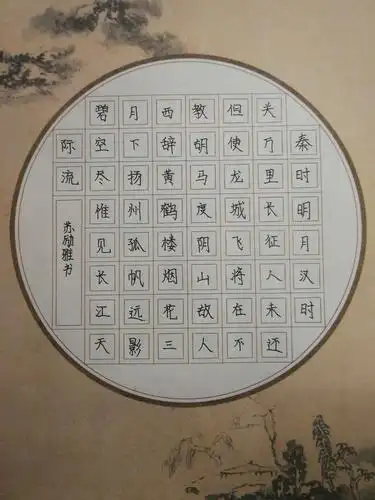 秦时明月汉时
关万里长征人未还
但使龙城飞将在不
教胡马度阴山故人
西辞黄鹤楼烟花三
月下扬州孤帆远影
碧空尽惟见长江天
际流
苏励雅书